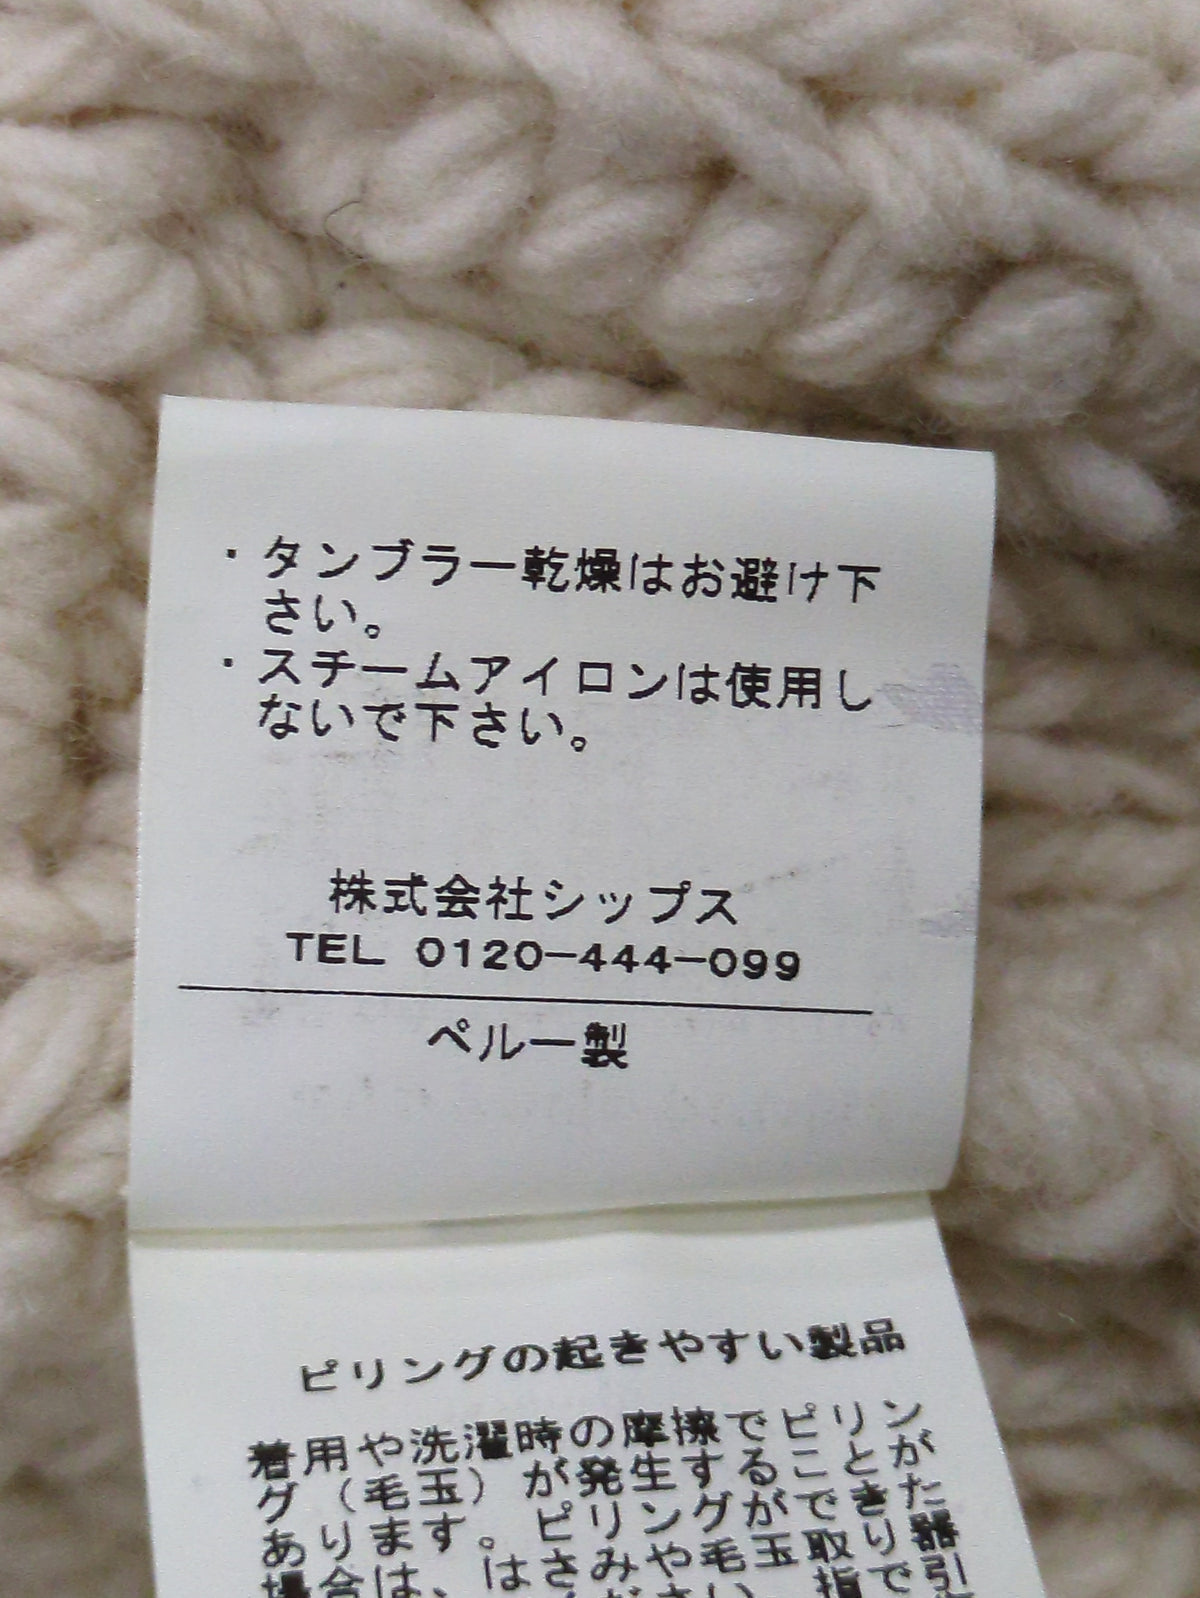 ・タンブラー乾燥はお避け下
さい。
・スチームアイロンは使用し
ないで下さい。
株式会社シップス
TEL 0120-444-099
ペルー製
ピリングの起きやすい製品
着用や洗濯時の摩擦でピリン
グ（毛玉）が発生することが
あります。ピリングができた
場合は、はさみや毛玉取り器
指で引